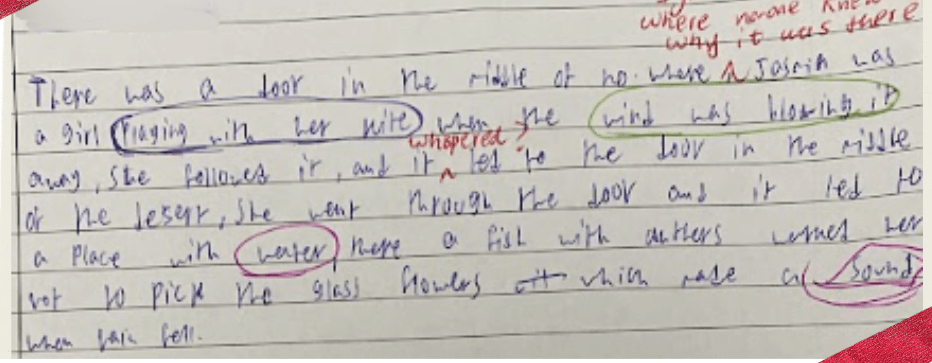 where no-one knew
why it was there
There was a door in the middle of no-where ^ Jasmin was
a girl Playing with her kite when the wind was blowing it
whispered
away, she followed it, and it ^ led to the door in the middle
of the desert, she went through the door and it led to
a place with water there a fish with antlers warned her
not to pick the glass flowers which made a sound
when rain fell.